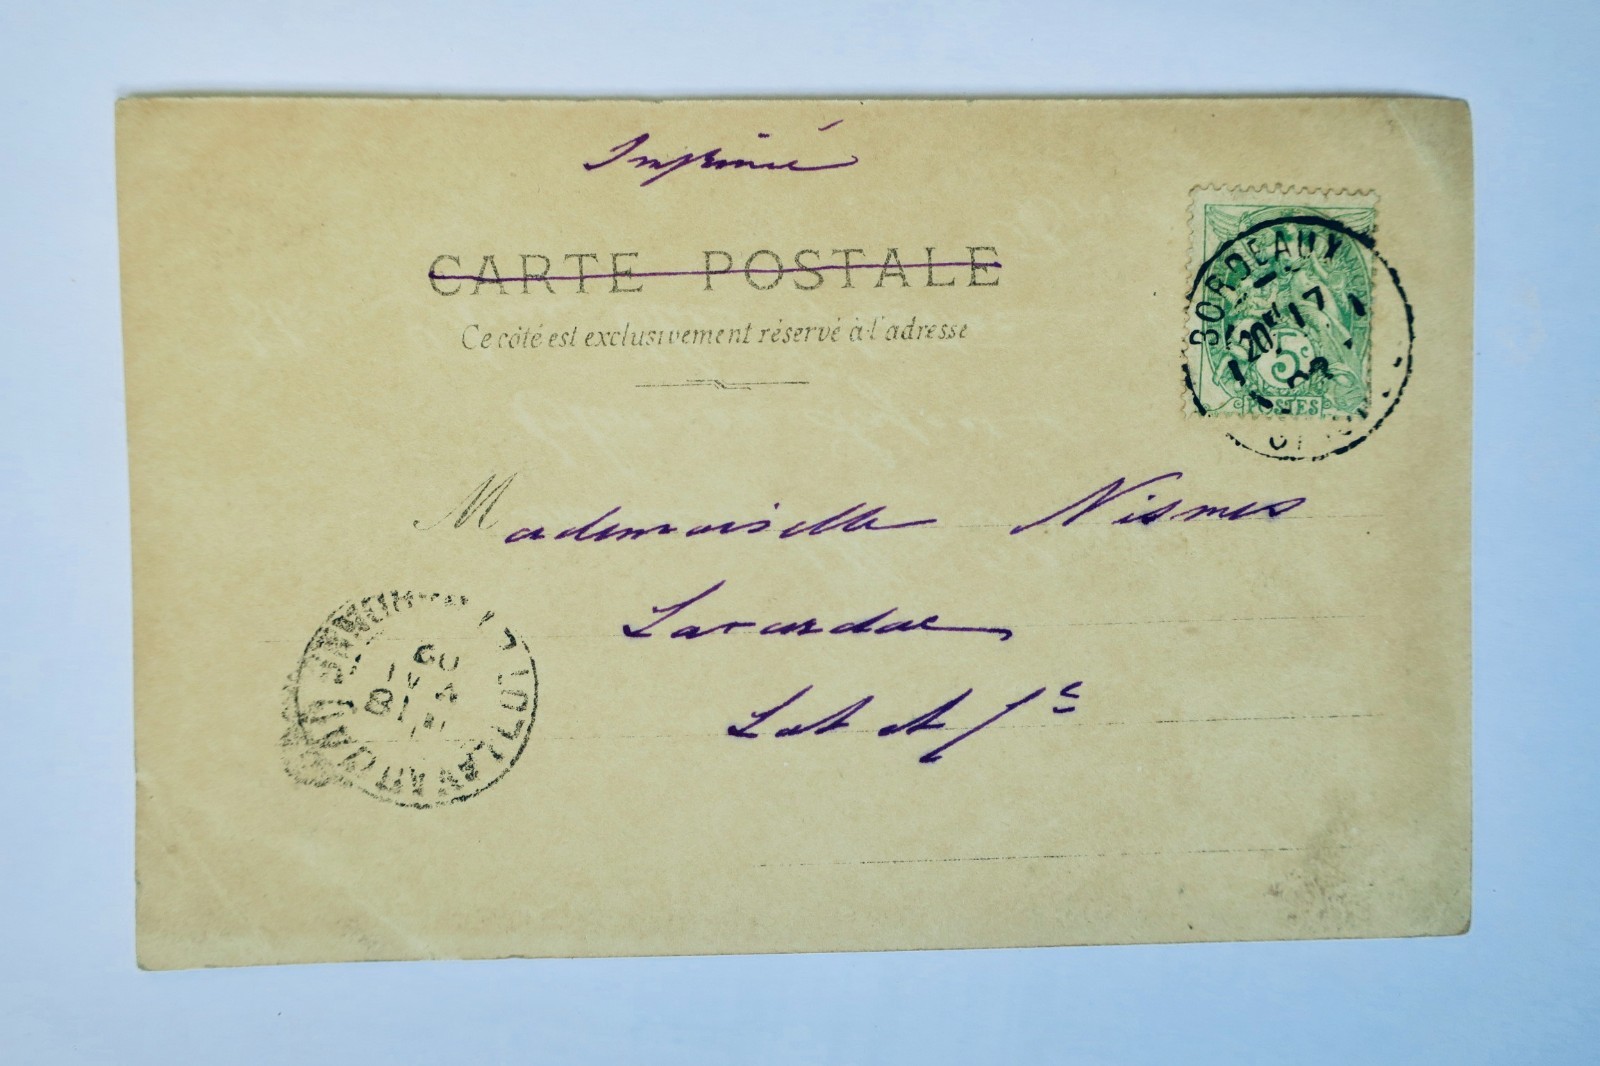 Imprimé
CARTE POSTALE
Ce côté est exclusivement réservé à l'adresse
BORDEAUX
20 17
5c
POSTES
Mademoiselle Nismes
Lavardac
Lot et Gne